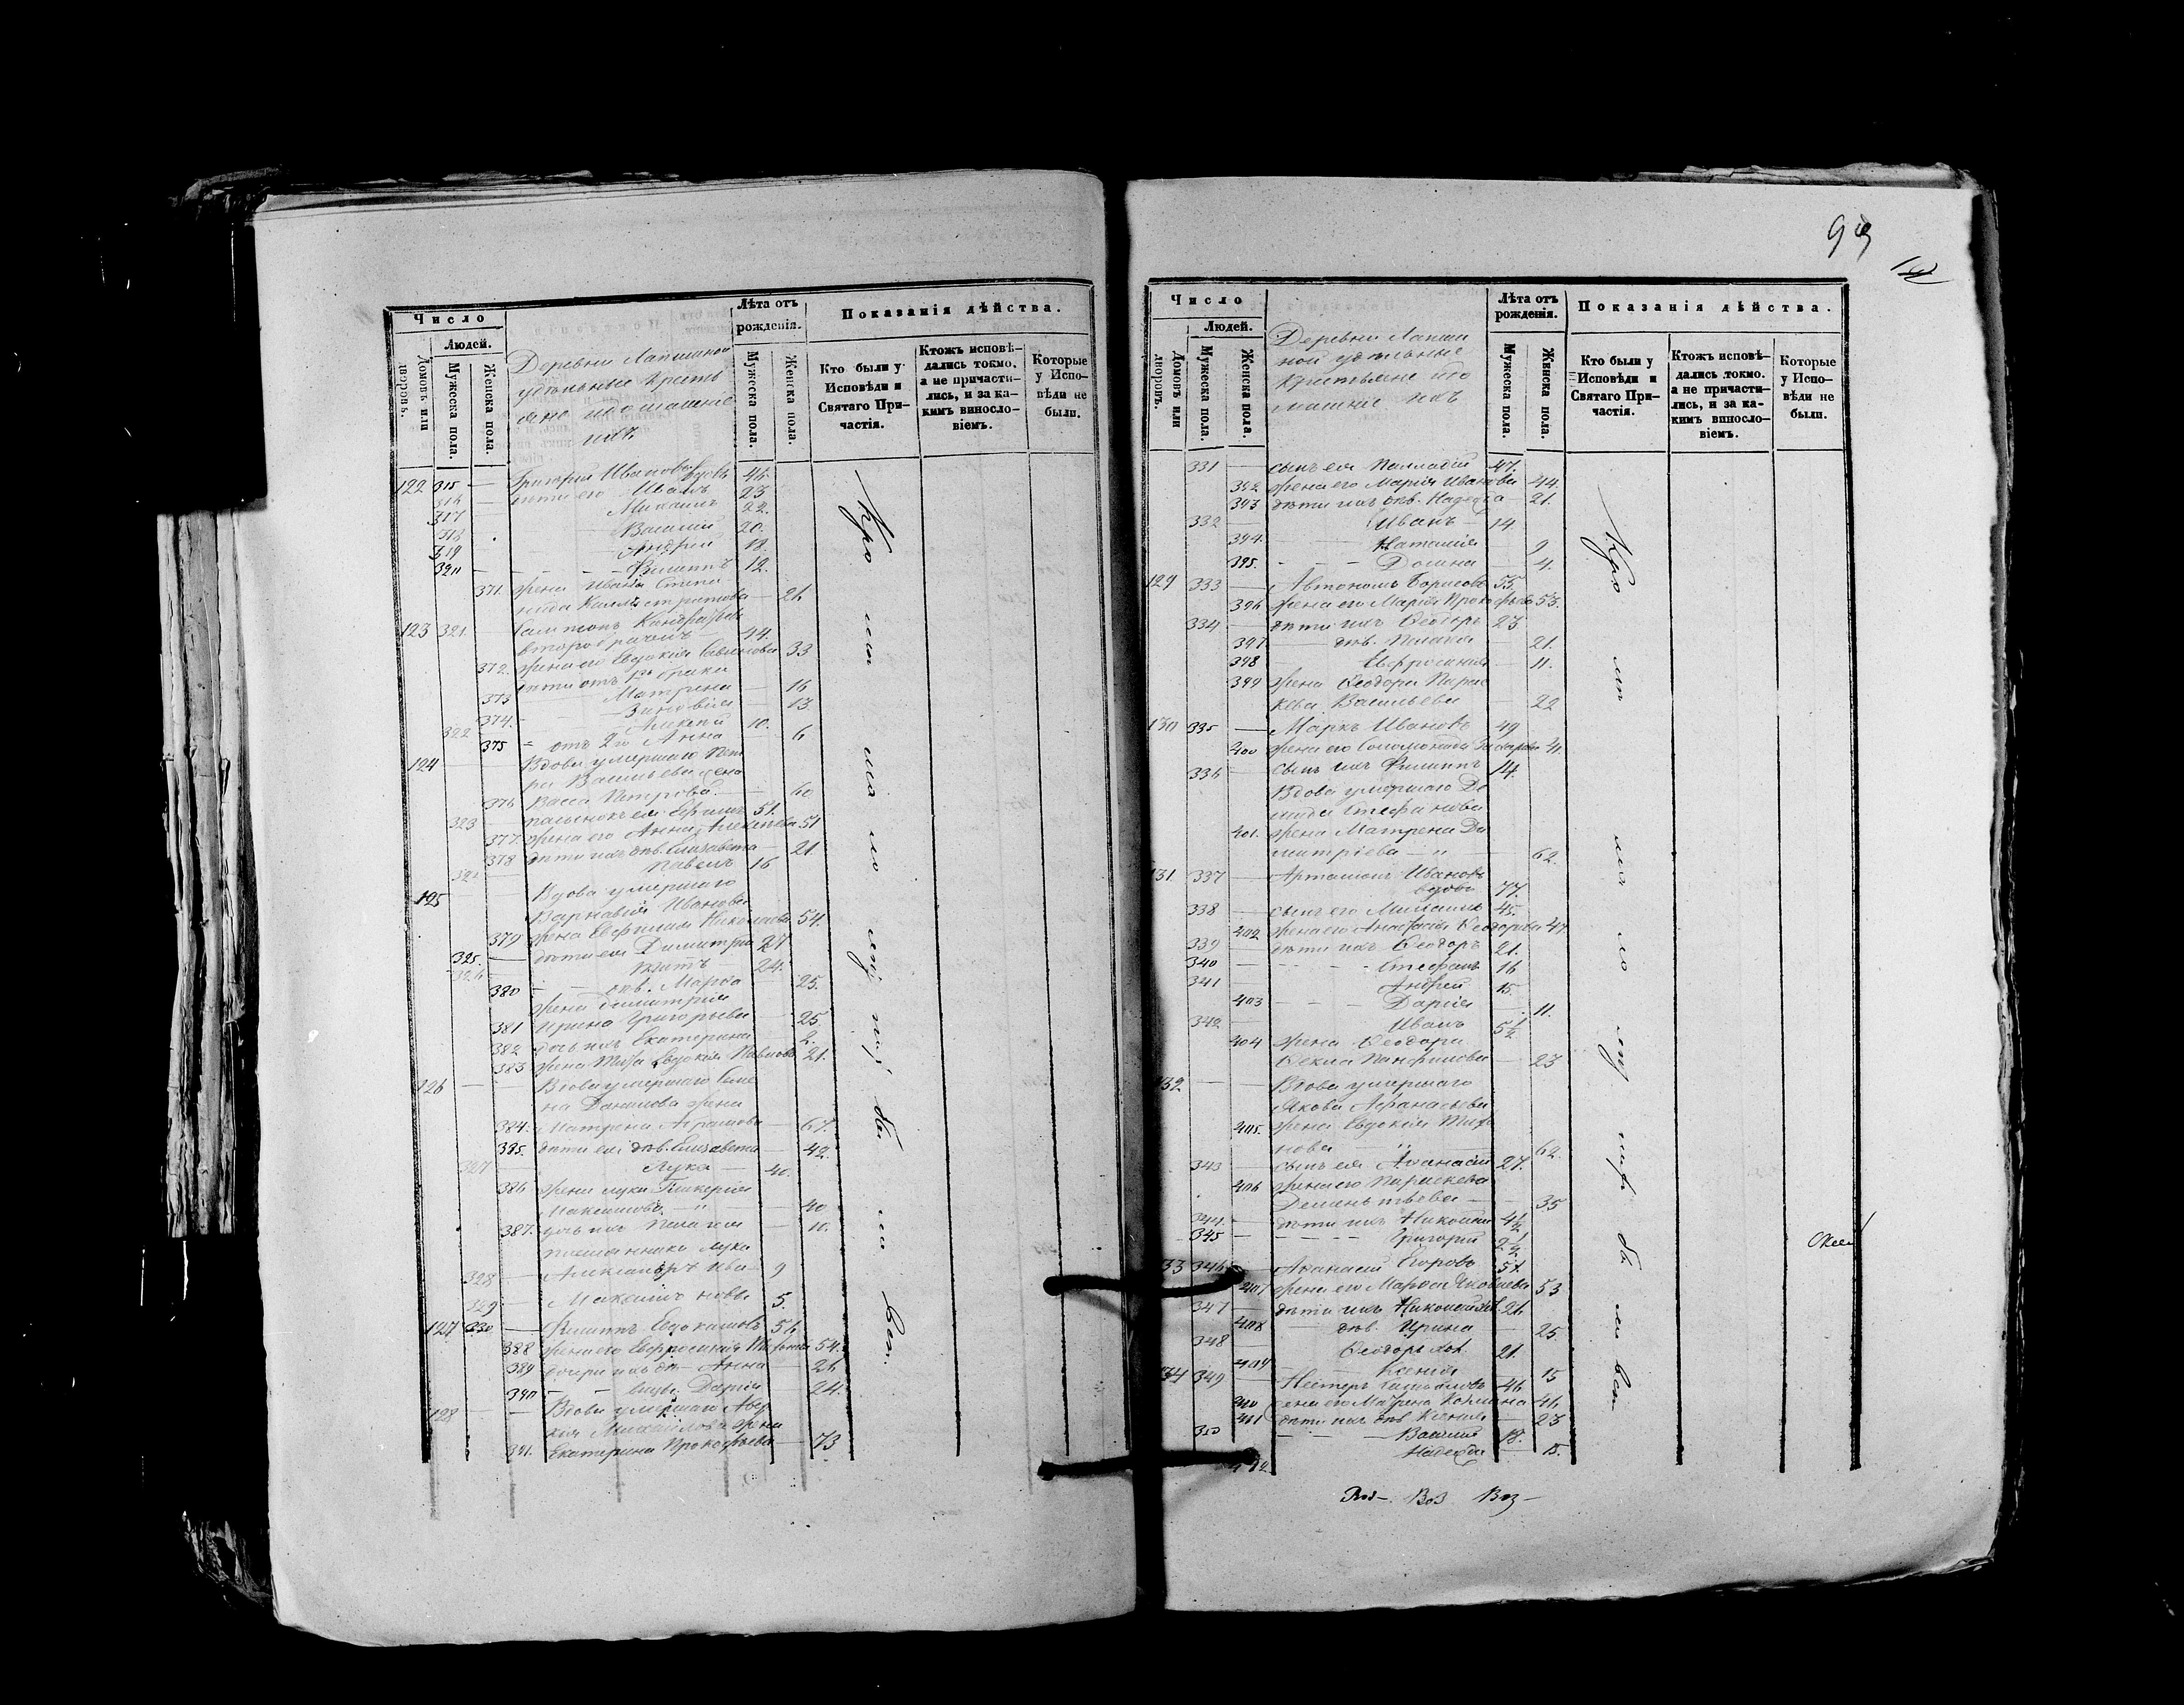 Число
Людей.
Домовъ или дворовъ.
Мужеска пола.
Женска пола.
Деревни Лапшиной
удѣльные кресть
яне и домашніе
ихъ
Лѣта отъ
рожденія.
Мужеска пола.
Женска пола.
Показанія дѣйства.
Кто были у
Исповѣди и
Святаго При-
частія.
Ктожъ исповѣ-
дались токмо,
а не причасти-
лись, и за ка-
кимъ винослo-
віемъ.
Которые
у Испо-
вѣди не
были.
122 315 — Григорій Ивановъ вдовъ 44
316 — дѣти его Иванъ 23
317 Михаилъ 22.
318 Василій 20.
319 Андрей 18.
320 — Филиппъ 12.
371. жена Ивана Степа
нида Каллистратова — 26
123 321. — Сампсонъ Кондратьевъ
второбрачный — 44.
372. жена его Евдокія Савинова 33
дѣти отъ 1го брака
373 Матрена — 16
374. Зиновія — 13.
322 Алексѣй 10.
375 = отъ 2го Анна — 6
124 Вдова умершаго Пет
ра Васильева жена
376 Васса Петрова — 60
323 пасынокъ ея Ефимъ 51.
377. жена его Анна Алексѣева 51
378 дѣти ихъ дѣв. Елизавета — 21
324 Павелъ 16
125 Вдова умершаго
Варнавія Иванова
379 жена Евфимія Николаева 54.
325. — дѣти ея Димитрій 27
326 Титъ 24.
380 дѣв. Марѳа — 25.
жена Димитрія
381 Ирина Григорьева — 25
382 дочь ихъ Екатерина — 2.
383 жена Тита Евдокія Павлова 21.
126 — Вдова умершаго Семе
на Данилова жена
384. Матрена Абрамова — 67.
385. дѣти ея дѣв. Елизавета — 42.
327 Лука — 40.
386 жена Луки Гликерія
Максимова — " — 40
387. дочь ихъ Пелагея — 10.
племянники Луки
328 — Александръ Ива 9
329 — Максимъ новы 5.
127 330 — Филиппъ Евдокимовъ 56
388 жена его Евфросинія 54.
389 дочери ихъ дѣв. Анна — 26
390 — Дарія — 24.
128 — Вдова умершаго Авд
кія Михайлова жена
391. Екатерина Прокофьева — 73
99
Число
Людей.
Домовъ или дворовъ.
Мужеска пола.
Женска пола.
Деревни Лапши
ной удѣльные
крестьяне и до
машніе ихъ
Лѣта отъ
рожденія.
Мужеска пола.
Женска пола.
Показанія дѣйства.
Кто были у
Исповѣди и
Святаго При-
частія.
Ктожъ исповѣ-
дались токмо.
а не причасти-
лись, и за ка-
кимъ винослo-
віемъ.
Которые
у Испо-
вѣди не
были.
331 — сынъ ея Палладій 47.
392 жена его Марія Иванова 44.
393 дѣти ихъ дѣв. Надежда — 21.
332 — Иванъ — 14.
394. Наталія 9
395. — Домна — 4.
129 333 — Автономъ Борисовъ 55.
396 жена его Марія Прокофьева 53.
334 — дѣти ихъ Ѳеодоръ 23
397 — дѣв. Пелагея — 21.
398 — Евфросинія — 11.
399 жена Ѳеодора Парас
кева Васильева — 22
130 335 — Маркъ Ивановъ 49
400 жена его Соломонида Захарова 41
336 — сынъ ихъ Филиппъ 14.
Вдова умершаго Де
мида Стефанова
401. жена Матрена Ди
митріева — " — 62.
131. 337 — Артамонъ Ивановъ
вдовъ 77.
338 — сынъ его Михаилъ 45.
402 жена его Анастасія Ѳеодорова 47
339 — дѣти ихъ Ѳеодоръ 21.
340 — Стефанъ 16
341 — Андрей 15.
403 — Дарія 11.
342 Иванъ 5½
404 жена Ѳеодора
Ѳекла Панфилова — 23
132 — Вдова умершаго
Якова Аѳанасьева
405. жена Евдокія Тихо
нова — " — 62.
343 — сынъ ея Аѳанасій 27.
406 жена его Параскева
Дементьева — 35
344. — дѣти ихъ Николай 4½
345 — Григорій 2½
133 346 — Аѳанасій Егоровъ 51.
407 жена его Марѳа Яковлева 53
347 — дѣти ихъ Николай 26
408 дѣв. Ирина — 25.
348 Ѳеодоръ 21.
409 — Ксенія 15
134 349 — Несторъ 46
410 жена его Матрена 46
411 дѣти ихъ дѣв. Ксенія — 23
350 — Василій 18.
412 Надежда — 15.